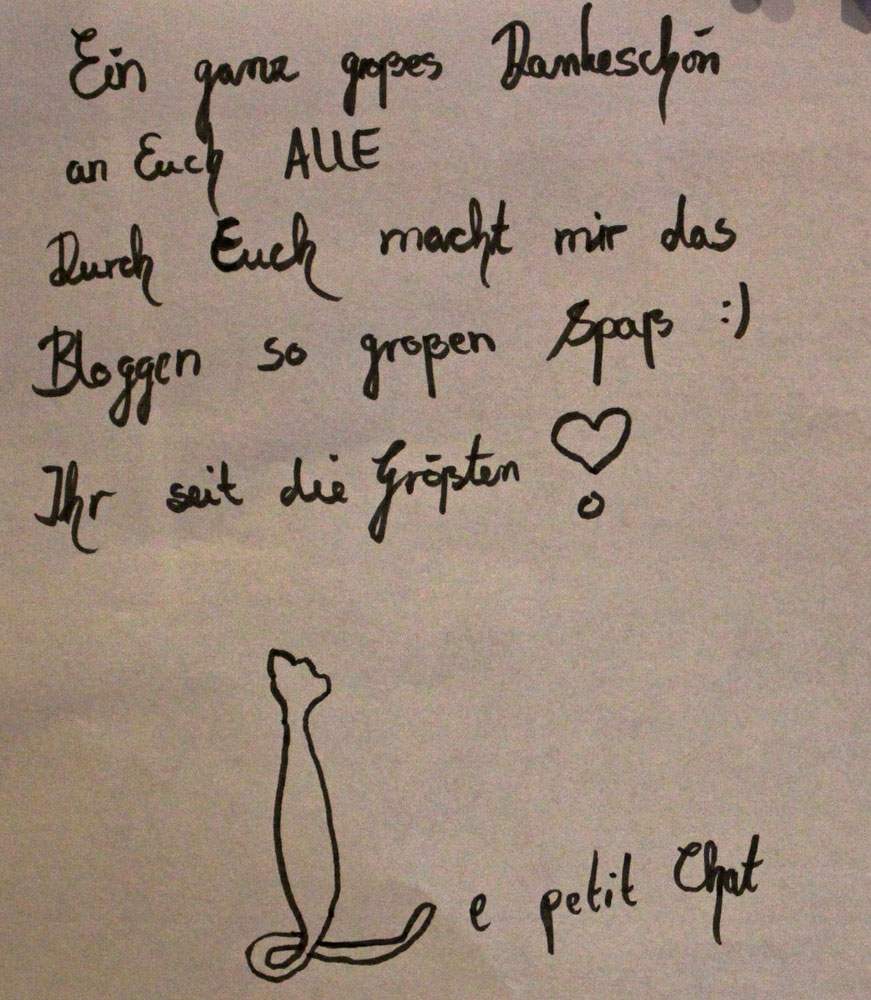 Ein ganz großes Dankeschön
an Euch ALLE
Durch Euch macht mir das
Bloggen so großen Spaß :)
Ihr seit die Größten ♡
Le petit Chat